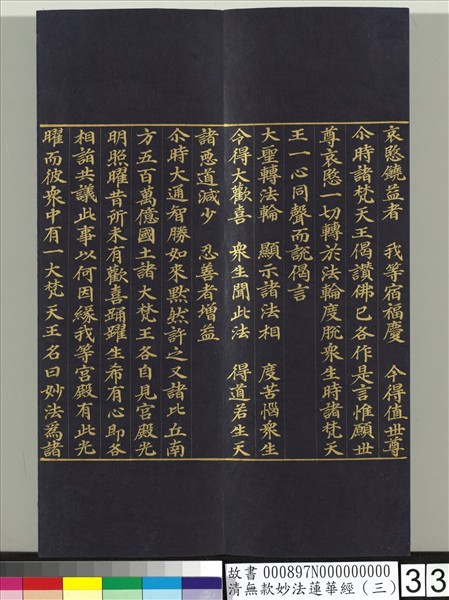 哀愍饒益者　我等宿福慶　今得值世尊
尒時諸梵天王偈讚佛已各作是言惟願世
尊哀愍一切轉於法輪度脫衆生時諸梵天
王一心同聲而說偈言
大聖轉法輪　顯示諸法相　度苦惱衆生
令得大歡喜　衆生聞此法　得道若生天
諸惡道減少　忍善者增益
尒時大通智勝如來默然許之又諸比丘南
方五百萬億國土諸大梵王各自見宮殿光
明照曜昔所未有歡喜踊躍生希有心即各
相詣共議此事以何因緣我等宮殿有此光
曜而彼衆中有一大梵天王名曰妙法為諸
故書 000897N000000000
清無款妙法蓮華經（三）
33